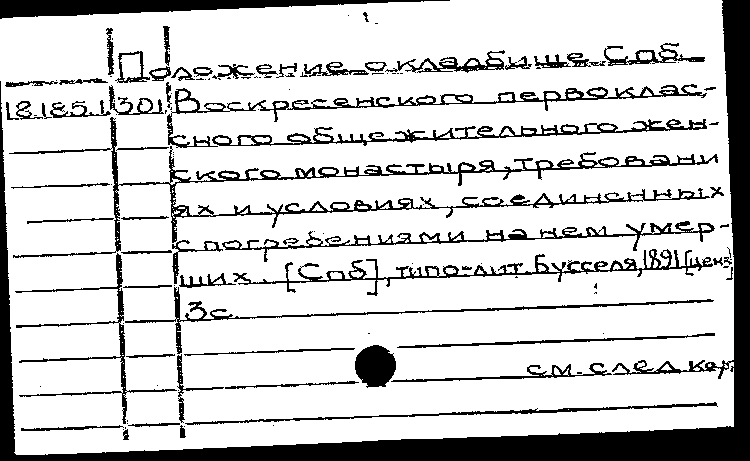 Положение о кладбище Спб.
18.185.1.301 Воскресенского первоклас-
сного общежительного жен-
ского монастыря, требовани
ях и условиях, соединенных
с погребениями на нем умер-
ших. [Спб], типо-лит. Бусселя, 1891 [ценз]
3с.
см. след кар.